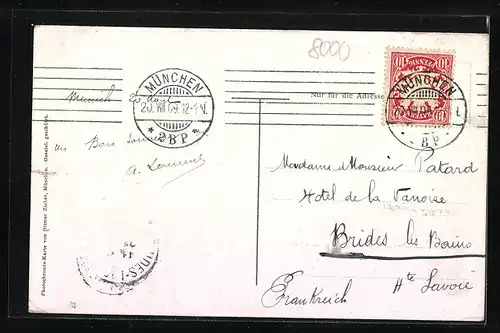 8000
MÜNCHEN
20. VIII 09. 12-1 N.
* 2 B P *
10 PFENNIG 10
BAYERN
MÜNCHEN
B P
Nur für die Adresse
Munich
un Bon Souvenir
Madame & Monsieur Patard
Hotel de la Vanoise
Brides les Bains
Hte Savoie
Frankreich
BRIDES-L
Photochromie-Karte von Ottmar Zieher, München. Gesetzl. geschützt.